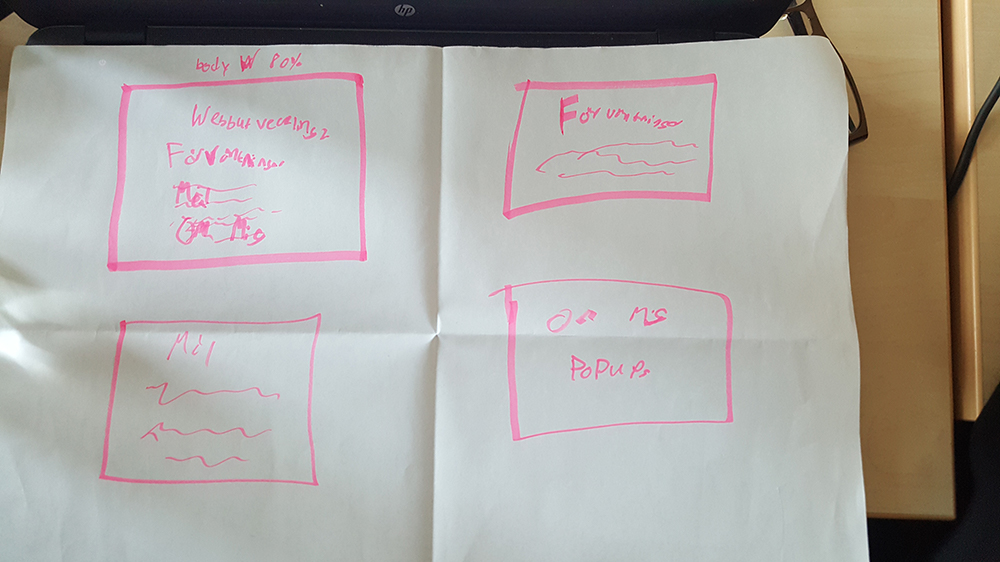 hp
body W 80%
Webbutveckling 2
Förväntningar
Mål
Om Mig
Förväntningar
Mål
Om Mig
PoPuPs